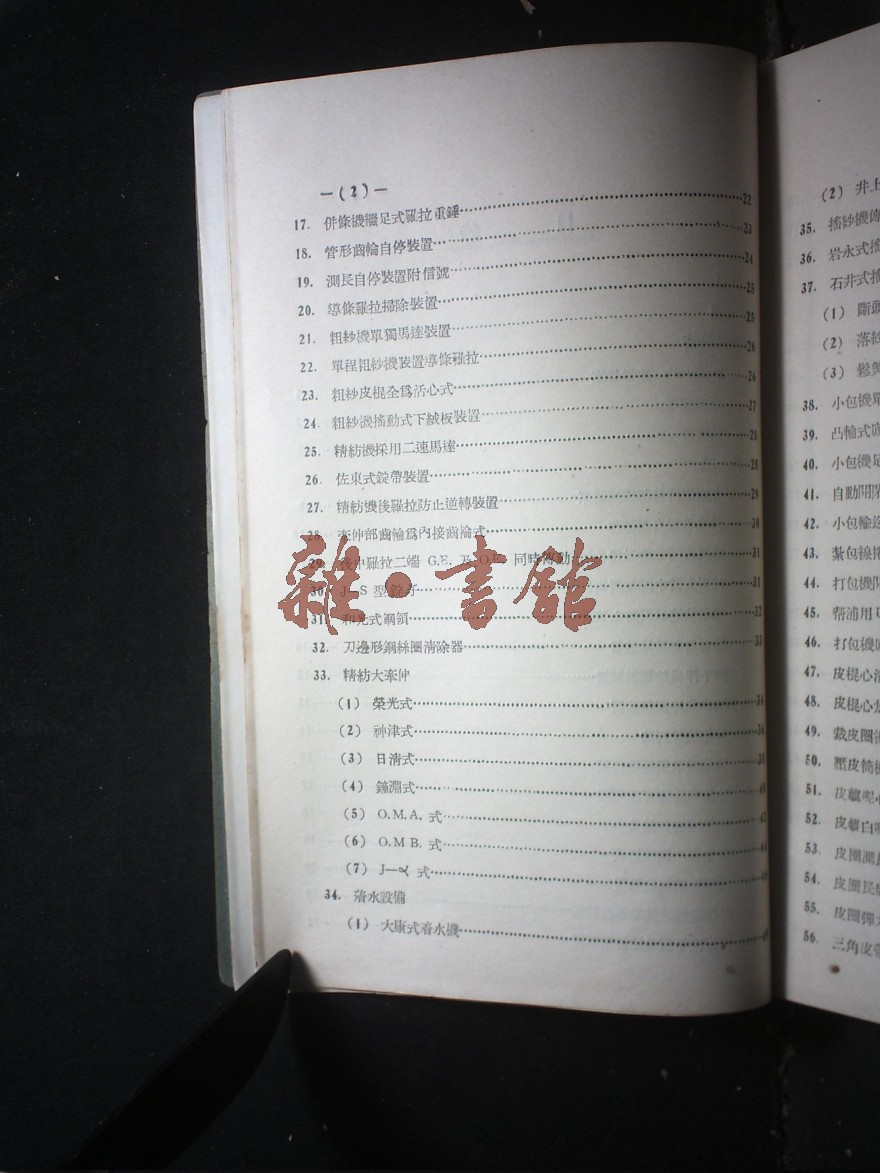 —(2)—
17. 併條機繼足式羅拉重錘 22
18. 管形齒輪自停裝置 23
19. 測長自停裝置附信號 24
20. 導條羅拉掃除裝置 25
21. 粗紗機單獨馬達裝置 25
22. 單程粗紗機裝置導條羅拉 26
23. 粗紗皮棍全爲活心式 26
24. 粗紗機搖動式下絨板裝置 27
25. 精紡機採用二速馬達 28
26. 佐東式錠帶裝置 28
27. 精紡機後羅拉防止逆轉裝置 29
28. 牽伸部齒輪爲內接齒輪式 30
29. 羅拉二端 G.E. 及 O.E. 同時傳動 31
30. J—S 型錠子 31
31. 和光式鋼領 32
32. 刀邊形鋼絲圈清除器 33
33. 精紡大牽伸
(1) 榮光式 34
(2) 神津式 36
(3) 日清式 38
(4) 鐘淵式 40
(5) O.M.A. 式 42
(6) O.M.B. 式 44
(7) J—α 式
34. 着水設備
(1) 大康式着水機
雜·書館
(2) 井上
35. 搖紗機
36. 岩永式搖
37. 石井式搖
(1) 斷頭
(2) 落紗
(3) 鬆
38. 小包機單
39. 凸輪式
40. 小包機足
41. 自動開
42. 小包輸送
43. 紮包線
44. 打包機
45. 幇浦用
46. 打包機
47. 皮棍心
48. 皮棍心
49. 裁皮圈
50. 壓皮筒
51. 皮輥呢
52. 皮輥白
53. 皮圈測長
54. 皮圈長
55. 皮圈彈
56. 三角皮帶